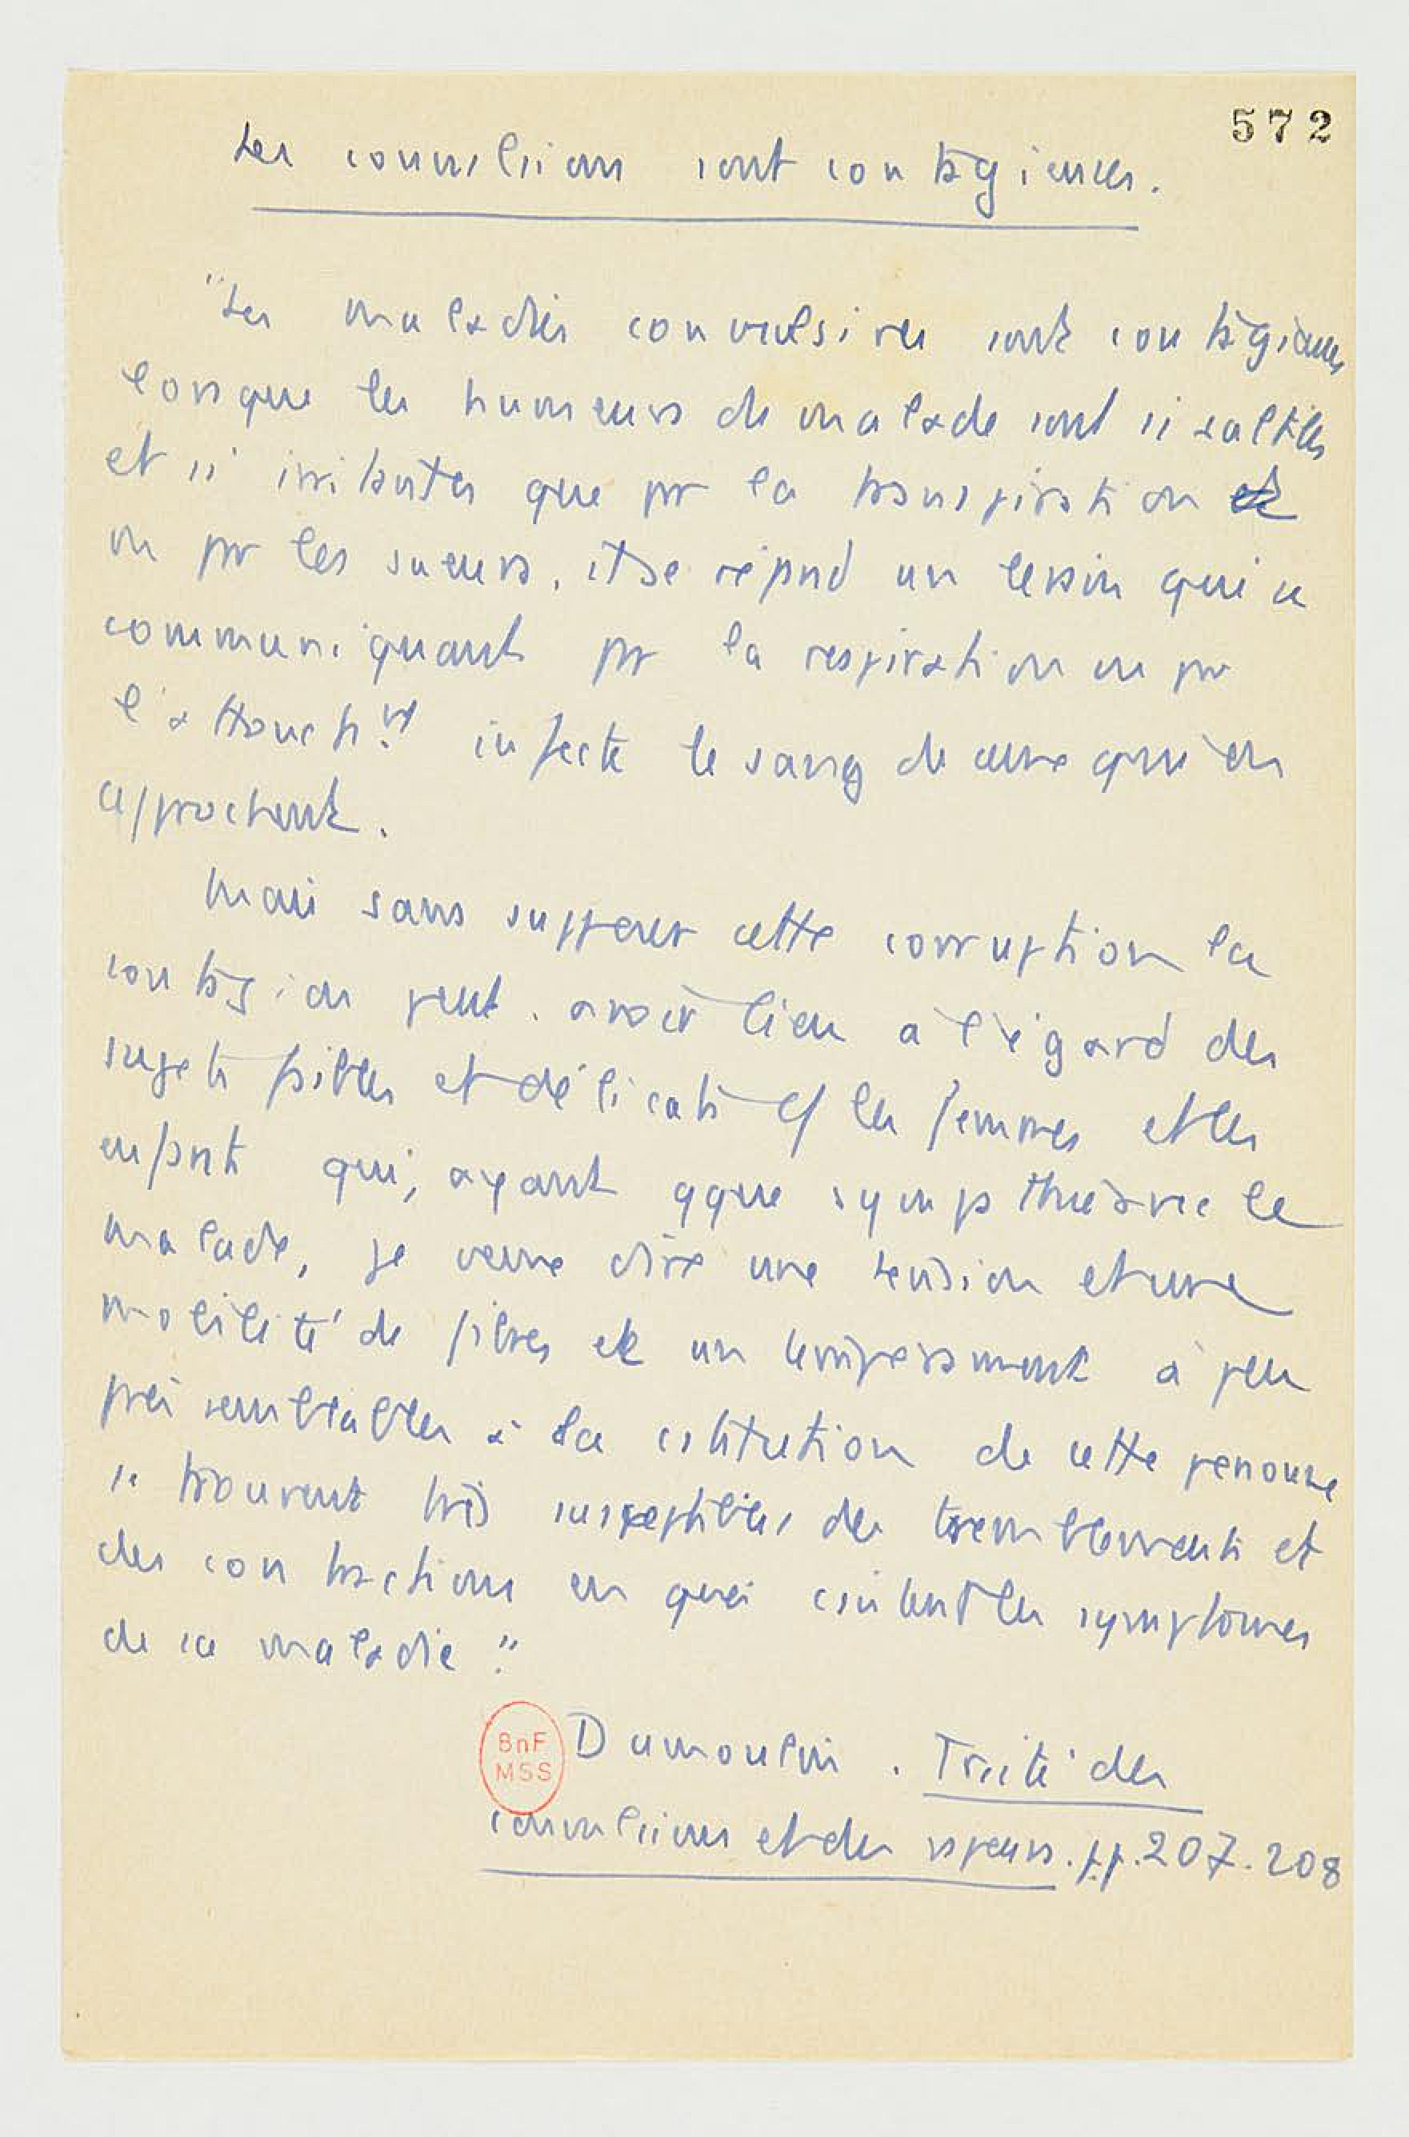 572
Les convulsions sont contagieuses.
"Les maladies convulsives sont contagieuses
lorsque les humeurs du malade sont si
et si irritantes que par la transpiration
ou par les sueurs, il se répand un levain qui se
communiquant par la respiration ou par
l'attouchnt infecte le sang de ceux qui en
approchent.
Mais sans supposer cette corruption la
contagion peut avoir lieu à l'égard des
sujets faibles et délicats cf les femmes et les
enfants qui, ayant qque sympathie avec le
malade, je veux dire une tension et une
mobilité de fibres et un tempérament à peu
près semblables à la cstitution de cette personne
se trouvent très susceptibles des tremblements et
des contractions en quoi csistent les symptomes
de sa maladie."
BnF
MSS
Dumoulin. Traité des
convulsions et des vapeurs. pp. 207-208